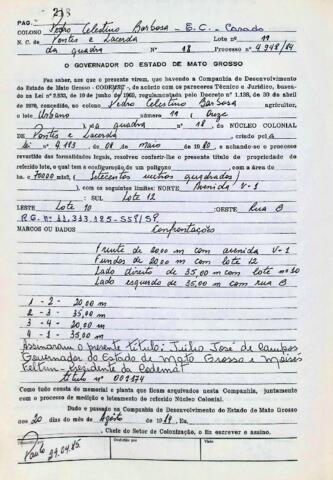 PAG. 213
COLONO Pedro Celestino Barbosa - E.C. - Casado
N. C. de Pontes e Lacerda Lote n.o 11
da quadra Nº 18 Processo n.o 4.948/84
O GOVERNADOR DO ESTADO DE MATO GROSSO
Faz saber, aos que o presente virem, que havendo a Companhia de Desenvolvimento
do Estado de Mato Grosso - CODEMAT -, de acordo com os pareceres Técnico e Jurídico, basea-
dos na Lei n.o
de 1970, concedido, ao colono Pedro Celestino Barbosa agricultor,
o lote Urbano número 11 (Onze
) na quadra nº 18, do NÚCLEO COLONIAL
de Pontes e Lacerda criado pela
Lei nº 4.113 de 08 de maio de 1980, e achando-se o processo
revestido das formalidades legais, resolveu conferir-lhe o presente título de propriedade do
referido lote, o qual tem a configuração de um polígono com a área de
ha. 70000 mts2, (Setecentos metros quadrados)
, com os seguintes limites: NORTE Avenida V-1
SUL Lote 12
LESTE Lote 10 OESTE Rua B
R.G. nº 11.313.125-SSP/SP.
MARCOS OU DADOS Confrontações
Frente de 20,00 m com avenida V-1
Fundos de 20,00 m com lote 12
Lado direito de 35,00 m com lote nº 10
Lado esquerdo de 35,00 m com rua B
1 - 2 - 20,00 m
2 - 3 - 35,00 m
3 - 4 - 20,00 m
4 - 1 - 35,00 m
Assinaram o presente título: Júlio José de Campos
Governador do Estado de Mato Grosso e Moisés
Feltrin - Presidente da Codemat
título nº 001174
Como tudo consta de memorial e planta que ficam arquivados nesta Companhia, juntamente
com o processo de medição e loteamento do referido Núcleo Colonial.
Dado e passado na Companhia de Desenvolvimento do Estado de Mato Grosso
aos 20 dias do mês de Agosto de 1984. Eu,
, Chefe do Setor de Colonização, o fiz escrever e assino.
Conferido por
Visto
29.04.85